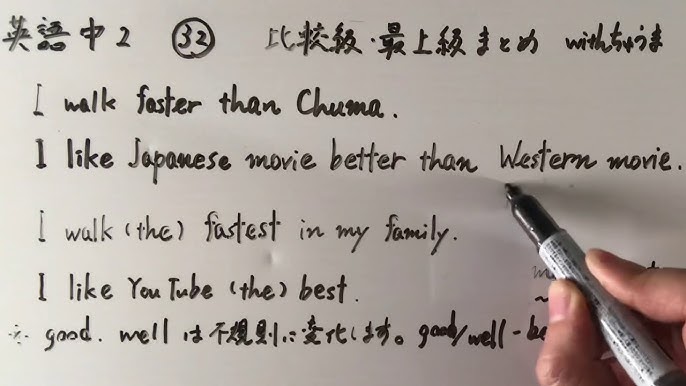 英語中2 ㉜ 比較級・最上級まとめ withちゅうま
I walk faster than Chuma.
I like Japanese movie better than Western movie.
I walk (the) fastest in my family.
I like YouTube (the) best.
※ good. well は不規則に変化します。good/well - be